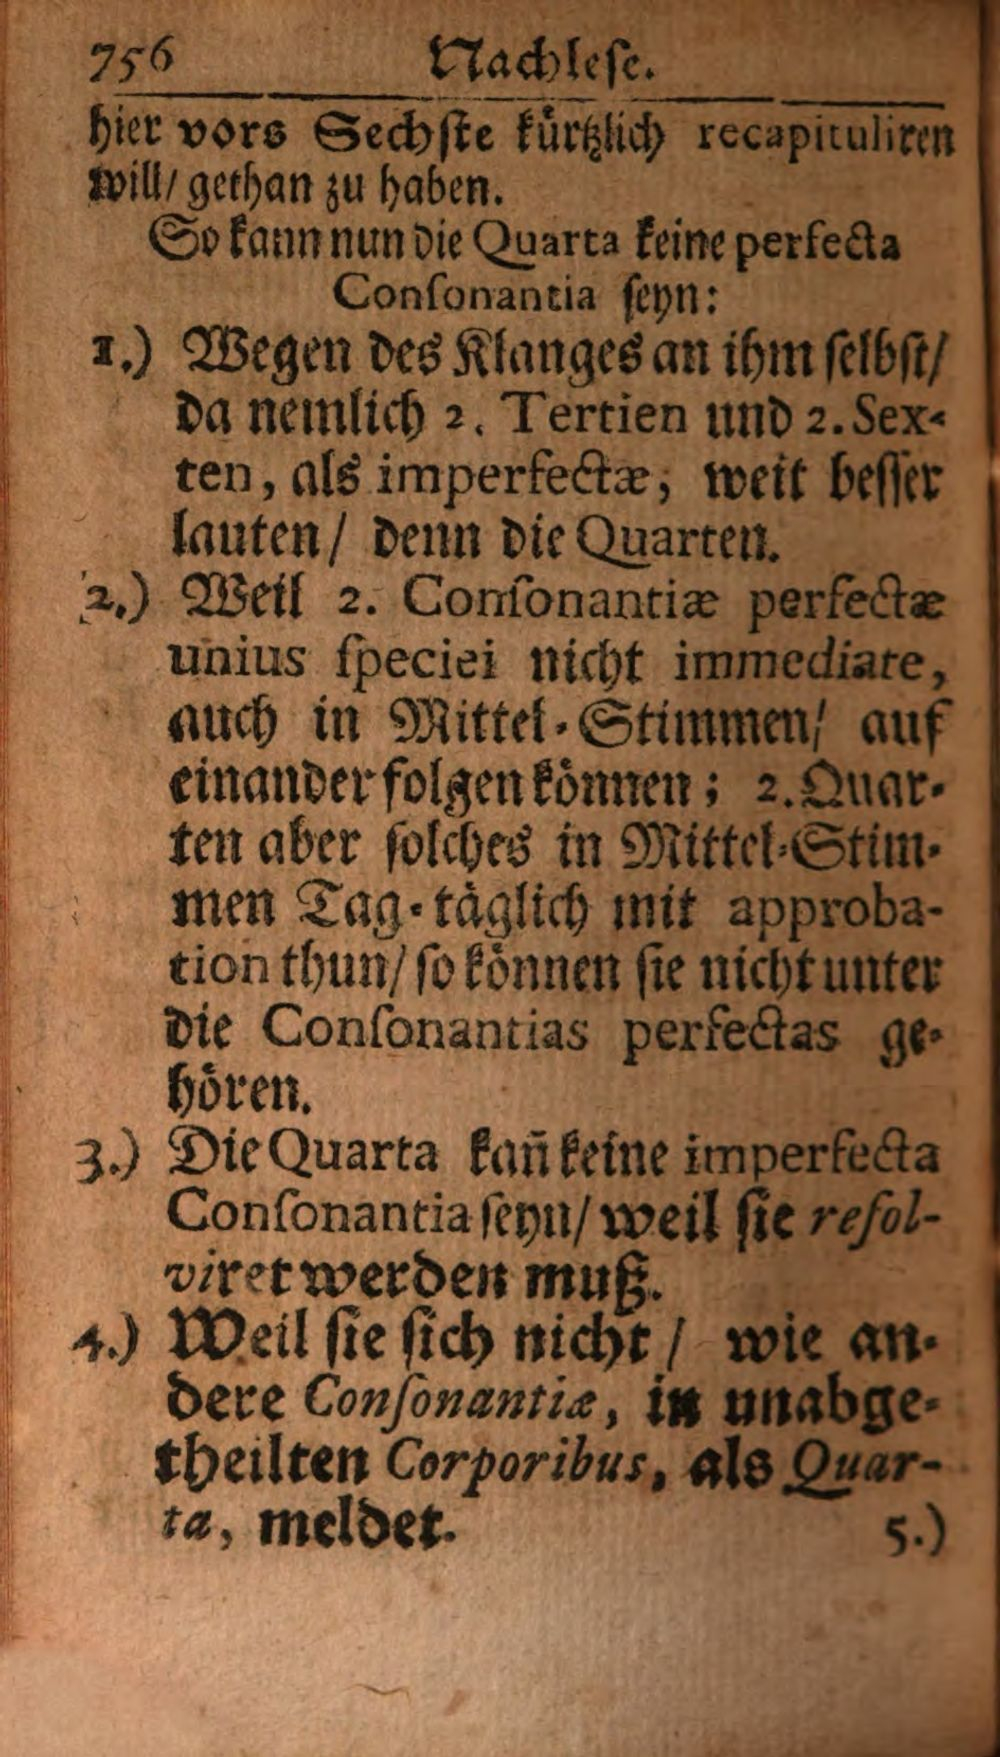 756 Nachleſe.
hier vors Sechſte kürtzlich recapituliren
will/ gethan zu haben.
So kann nun die Quarta keine perfecta
Conſonantia ſeyn:
1.) Wegen des Klanges an ihm ſelbſt/
da nemlich 2. Tertien und 2. Sex-
ten, als imperfectæ, weit beſſer
lauten/ denn die Quarten.
2.) Weil 2. Conſonantiæ perfectæ
unius ſpeciei nicht immediate,
auch in Mittel-Stimmen/ auf
einander folgen können; 2. Quar-
ten aber ſolches in Mittel-Stim-
men Tag-täglich mit approba-
tion thun/ ſo können ſie nicht unter
die Conſonantias perfectas ge-
hören.
3.) Die Quarta kañ keine imperfecta
Conſonantia ſeyn/ weil ſie reſol-
viret werden muß.
4.) Weil ſie ſich nicht/ wie an-
dere Conſonantiæ, in unabge-
theilten Corporibus, als Quar-
ta, meldet.
5.)